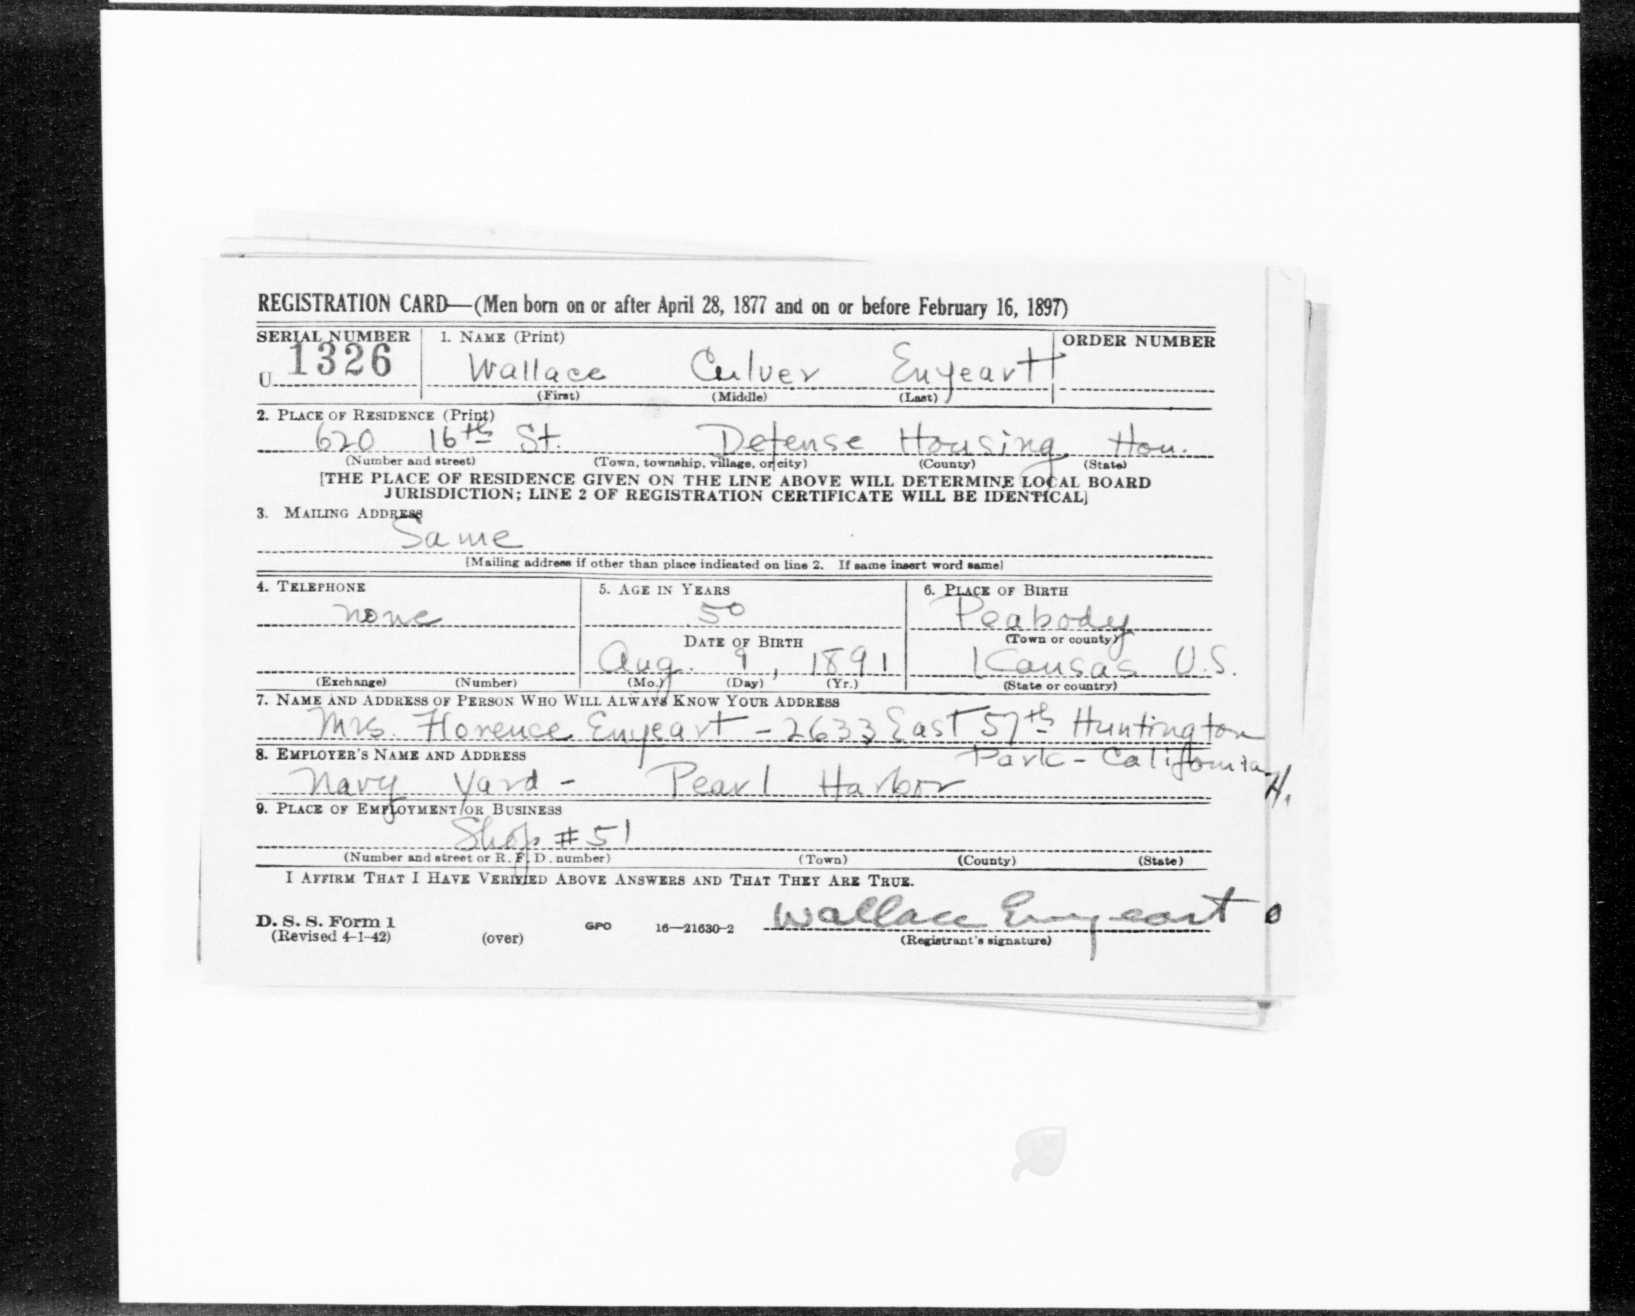 REGISTRATION CARD—(Men born on or after April 28, 1877 and on or before February 16, 1897)
SERIAL NUMBER 1. NAME (Print) ORDER NUMBER
U 1326 Wallace Culver Enyeart
(First) (Middle) (Last)
2. PLACE OF RESIDENCE (Print)
620 16th St. Defense Housing Hon.
(Number and street) (Town, township, village, or city) (County) (State)
[THE PLACE OF RESIDENCE GIVEN ON THE LINE ABOVE WILL DETERMINE LOCAL BOARD
JURISDICTION; LINE 2 OF REGISTRATION CERTIFICATE WILL BE IDENTICAL]
3. MAILING ADDRESS
Same
[Mailing address if other than place indicated on line 2. If same insert word same]
4. TELEPHONE 5. AGE IN YEARS 6. PLACE OF BIRTH
none 50 Peabody
DATE OF BIRTH (Town or county)
Aug. 9, 1891 Kansas U.S.
(Exchange) (Number) (Mo.) (Day) (Yr.) (State or country)
7. NAME AND ADDRESS OF PERSON WHO WILL ALWAYS KNOW YOUR ADDRESS
Mrs. Florence Enyeart - 2633 East 57th Huntington
8. EMPLOYER'S NAME AND ADDRESS Park - California
Navy Yard - Pearl Harbor H.
9. PLACE OF EMPLOYMENT OR BUSINESS
Shop #51
(Number and street or R. F. D. number) (Town) (County) (State)
I AFFIRM THAT I HAVE VERIFIED ABOVE ANSWERS AND THAT THEY ARE TRUE.
D. S. S. Form 1 Wallace Enyeart
(Revised 4-1-42) (over) GPO 16—21630-2 (Registrant's signature)